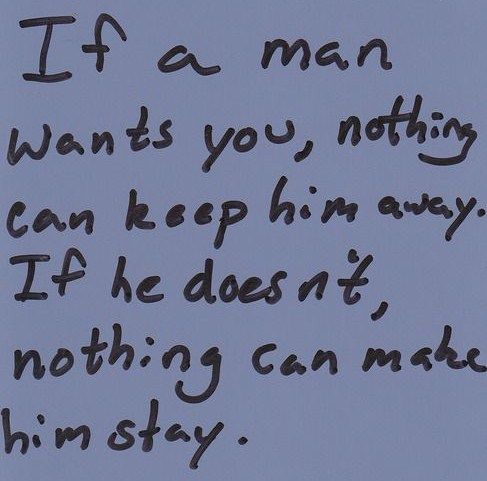 If a man
wants you, nothing
can keep him away.
If he doesn't,
nothing can make
him stay.